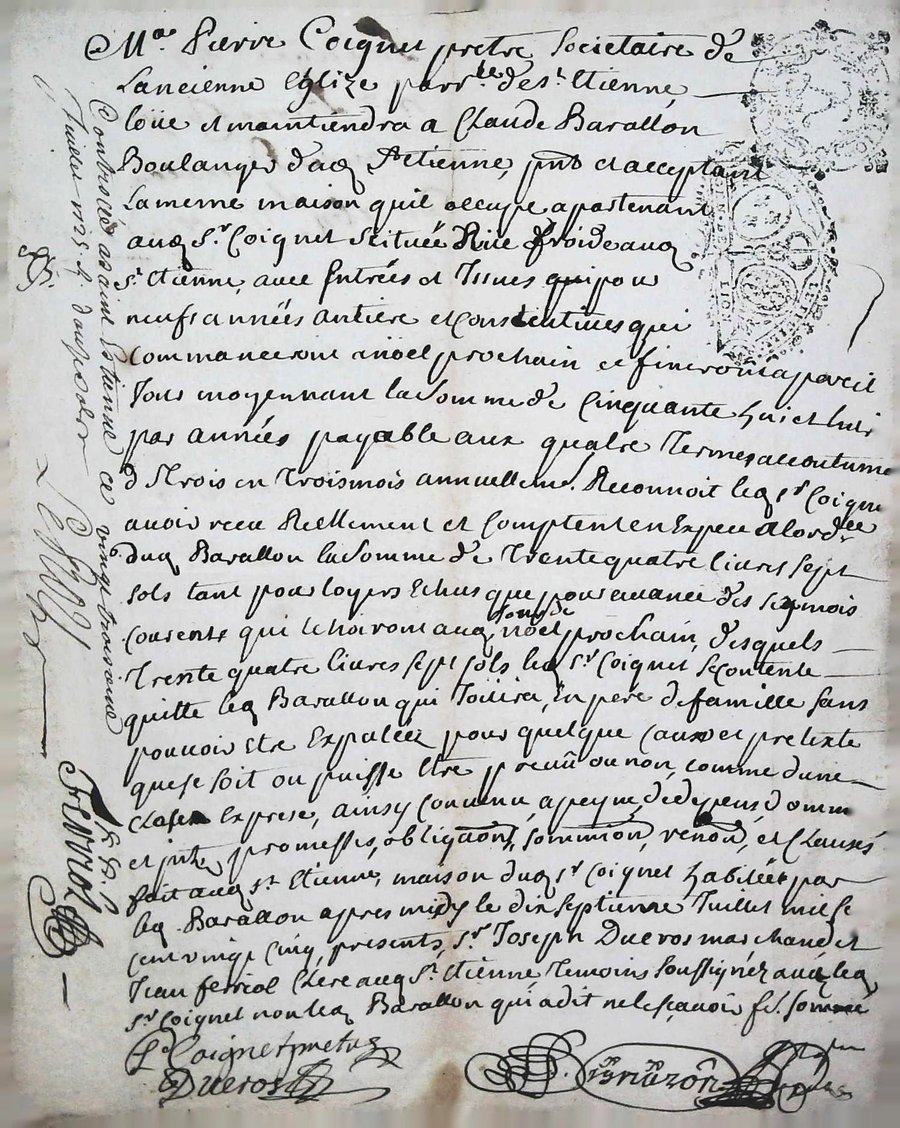 Mre Pierre Coignet pretre Societaire de
Lancienne Eglize parrlle de st Etienne
loüe et maintiendra a Claude Barallon
Boulanger daq St etienne, pnt et acceptant
La meme maison quil occupe apartenant
auq Sr Coignet Scituée Rüe froide auq
St Etienne, avec Entrées et Issues pour
neufs années antiere et Consecutives qui
Commanceront a noel prochain et finiront a pareil
Jour moyennant la Somme de Cinquante huict livres
par années payable aux quatre Termes accoutume
de trois en trois mois annuellemt. Reconnoit leq Sr Coignet
avoir receu Reellement et Comptent en Espece
duq Barallon la Somme de Trente quatre livres sept
sols tant pour loyers Echus que pour avance des six mois
Courents qui Echoiront auq jour de noel prochain, desquels
Trente quatre livres sept sols leq Sr Coignet se contente
quitte leq Barallon qui Joüira, En pere de famille sans
pouvoir Etre Expulsez pour quelque Cause et pretexte
que se soit ou puisse Etre preveu ou non, comme dune
Clause Exprese, ainsy Convenu, a peyne, de depens, domm
et intz promesses, obligaons, soummion, renon, et Clauses
fait auq St Etienne, maison duq Sr Coignet habitée par
leq Barallon apres midy le dix septieme Juillet mil sept
cent vingt cinq, presents, sr Joseph Ducros marchand et
Jean ferriol Clerc auq St Etienne, Temoins soussignez avec leq
Sr Coignet non leq Barallon qui a dit ne le sçavoir fe. sommé
P Coignet pretre
Ducros
Controllé a Saint Estienne ce vingt troisieme
Juillet 1725 R. douze sols
Ferriol